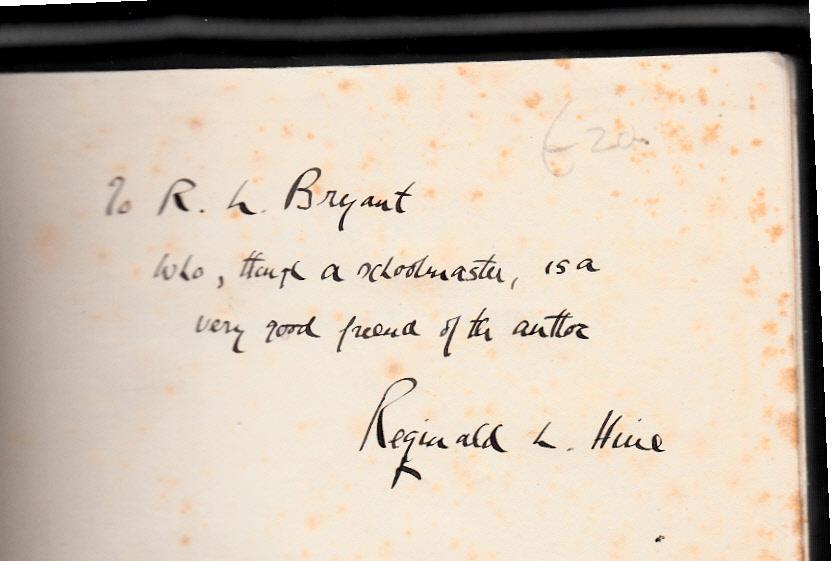 £20
To R. L. Bryant
who, though a schoolmaster, is a
very good friend of the author
Reginald L. Hine